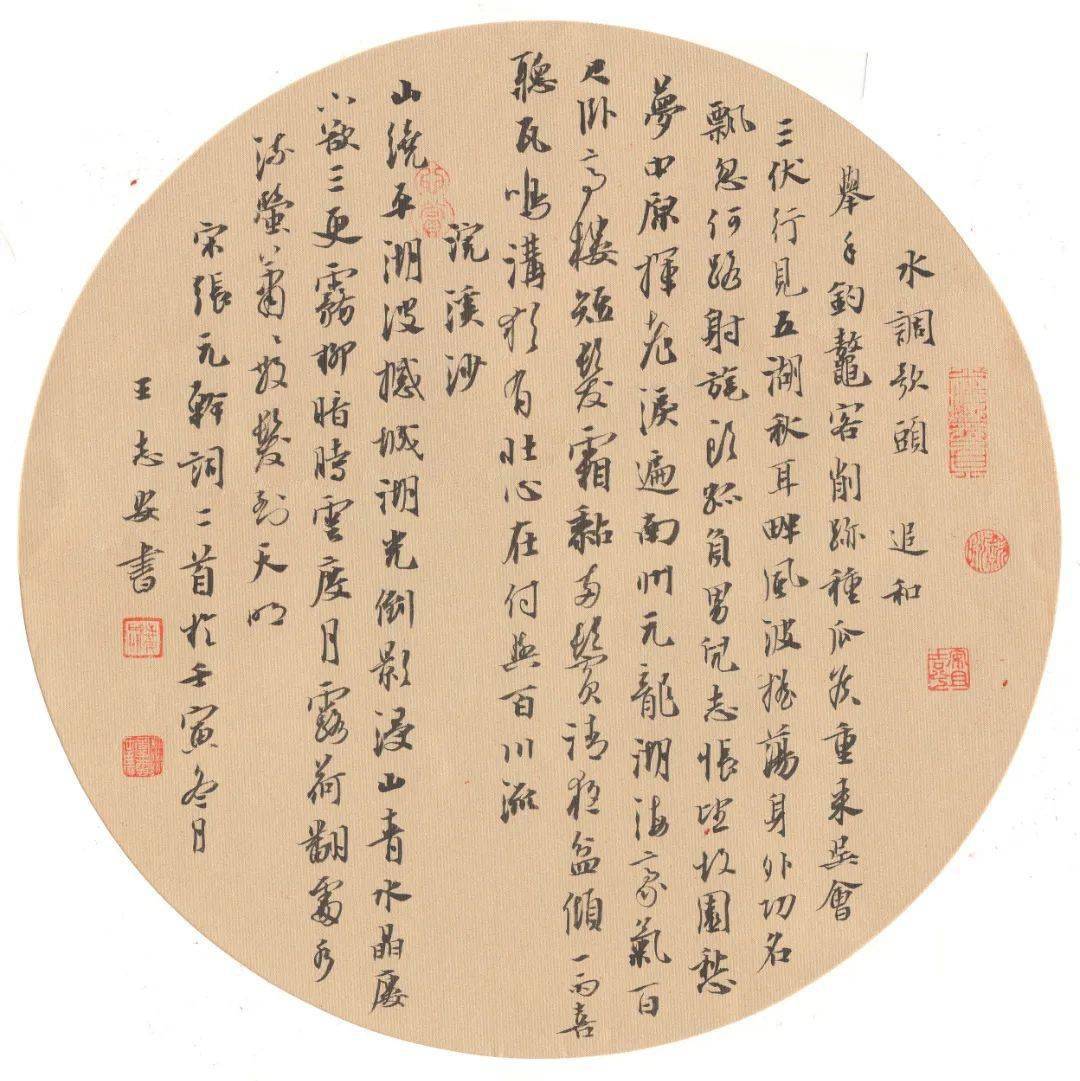 水調歌頭 追和
舉手釣鼇客削跡種瓜侯重來吳會
三伏行見五湖秋耳畔風波搖蕩身外功名
飄忽何路射旄頭孤負男兒志悵望故園愁
夢中原揮老淚遍南州元龍湖海豪氣百
尺卧高樓短髮霜黏兩鬢清夜盆傾一雨喜
聽瓦鳴溝猶有壯心在付與百川流
浣溪沙
山繞平湖波撼城湖光倒影浸山青水晶廔
下欲三更霧柳暗時雲度月露荷翻處水
流螢蕭蕭散髮到天明
宋張元幹詞二首於壬寅冬月
王志安書